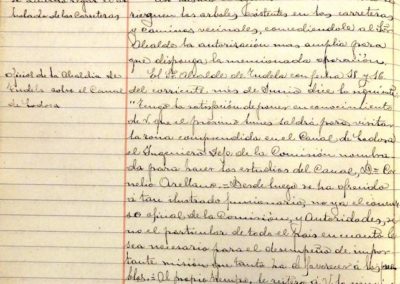 bolado de las Carreteras
rieguen los arboles existentes en las carreteras
y caminos vecinales, concediendole al Sr.
Alcalde la autorización mas amplia para
que disponga la mencionada operación.
Oficial de la Alcaldia de
Tudela sobre el Canal
de Lodosa
El Sr. Alcalde de Tudela con fecha 18 y 16
del corriente mes de Junio dice lo siguiente:
"Tengo la satisfacción de poner en conocimiento
de V. que el próximo lunes saldrá para visitar
la zona comprendida en el Canal de Lodosa
el Ingeniero Jefe de la Comisión nombra
da para hacer los estudios del Canal, Dn Cor
nelio Arellano.= Desde luego se ha ofrecido
a tan ilustrado funcionario, no ya el concur
so oficial de la Comisión y Autoridades, si
no el particular de todo el Pais en cuanto le
sea necesario para el desempeño de impor
tante misión que tanto ha de favorecer a los pue
blos.= Al propio tiempo